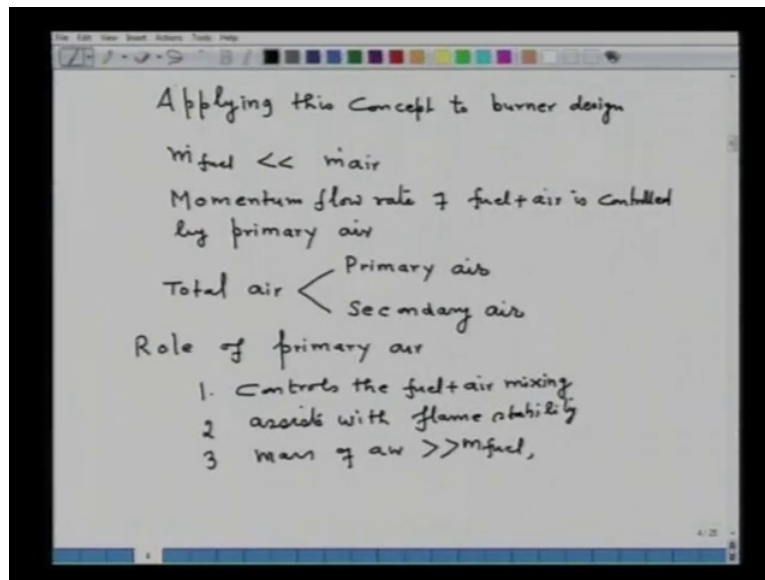 File Edit View Insert Actions Tools Help
Applying this concept to burner design
ṁ fuel << ṁ air
Momentum flow rate of fuel + air is controlled
by primary air
Primary air
Total air <
Secondary air
Role of primary air
1. Controls the fuel + air mixing
2 assists with flame stability
3 mass of air >> m fuel,